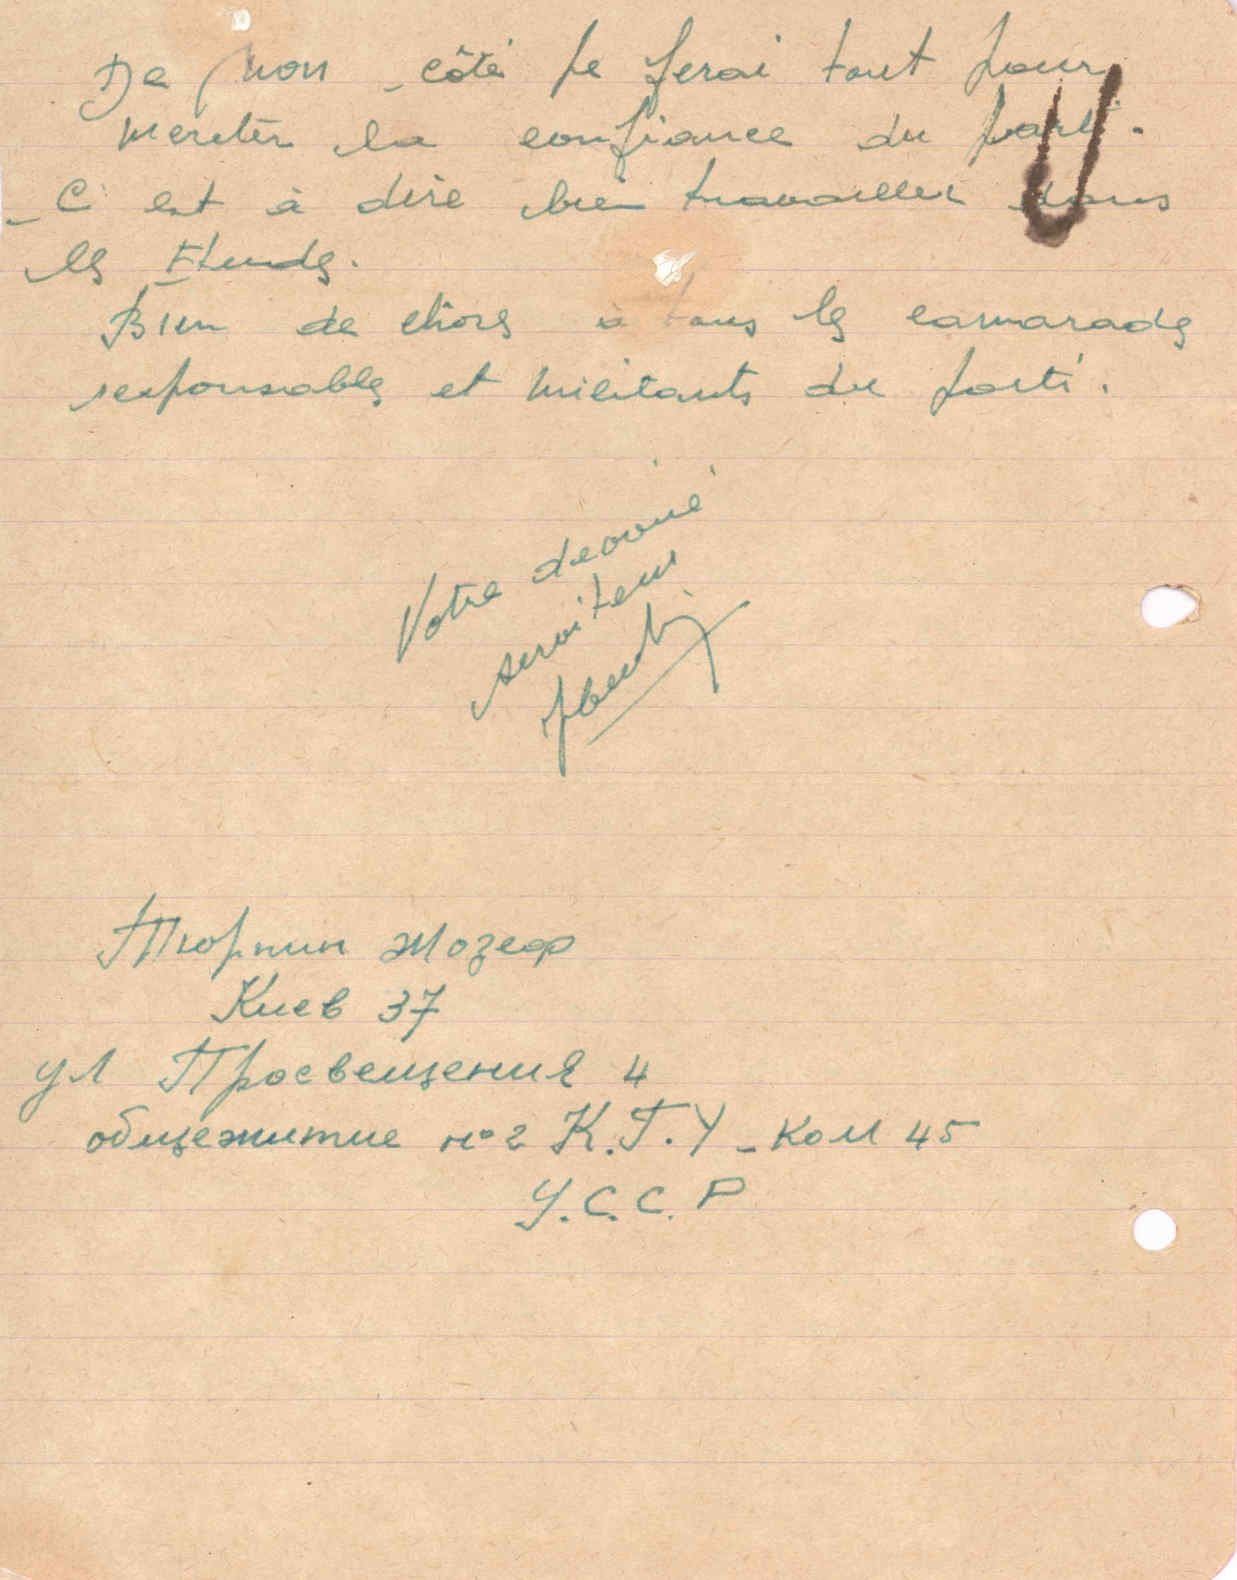 De mon côté je ferai tout pour
meriter la confiance du parti.
- C'est à dire bien travailler dans
les Etudes.
Bien de choses à tous les camarades
responsables et militants du parti.
Votre devoué
serviteur
Тюрпин Жозеф
Киев 37
ул Просвещения 4
общежитие н° 2 К.Г.У - ком 45
У.С.С.Р